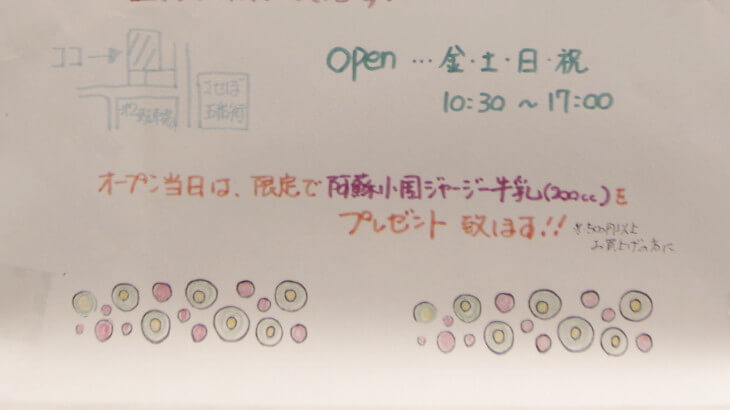 ココ
させぼ
五番街
Open … 金・土・日・祝
10:30 ～ 17:00
オープン当日は、限定で 阿蘇小国ジャージー牛乳(200cc)を
プレゼント 致します!!
※500円以上
お買上げの方に